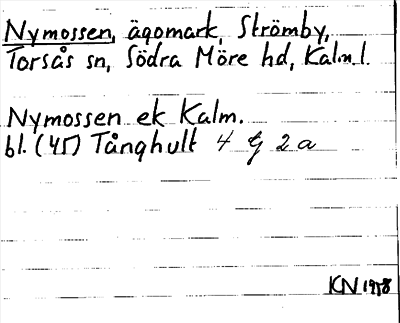 Nymossen, ägomark, Strömby,
Torsås sn, Södra Möre hd, Kalm. l.
Nymossen ek Kalm.
bl. (45) Tånghult 4 G 2 a
KN 1958